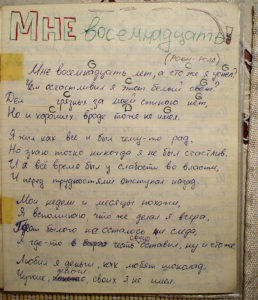 Мне восемнадцать!
(Рок-н-ролл)
G G
Мне восемнадцать лет, а что же я успел?
C G
Чем осчастливил я этот белый свет?
C G
Дел грязных за моей спиною нет,
C D G
Но и хороших вроде тоже не имел.
Я жил как все и был чему-то рад,
Но знаю точно никогда я не был счастлив.
И я всё время был у слабости во власти,
И перед трудностями отступал назад.
Мои недели и месяцы похожи,
Я вспоминаю, что же делал я вчера,
былого не осталось и следа,
Я где-то честь свою оставил, ну и что же
Любил я деньги, как любят шоколад,
Чужие, своих я не имел.